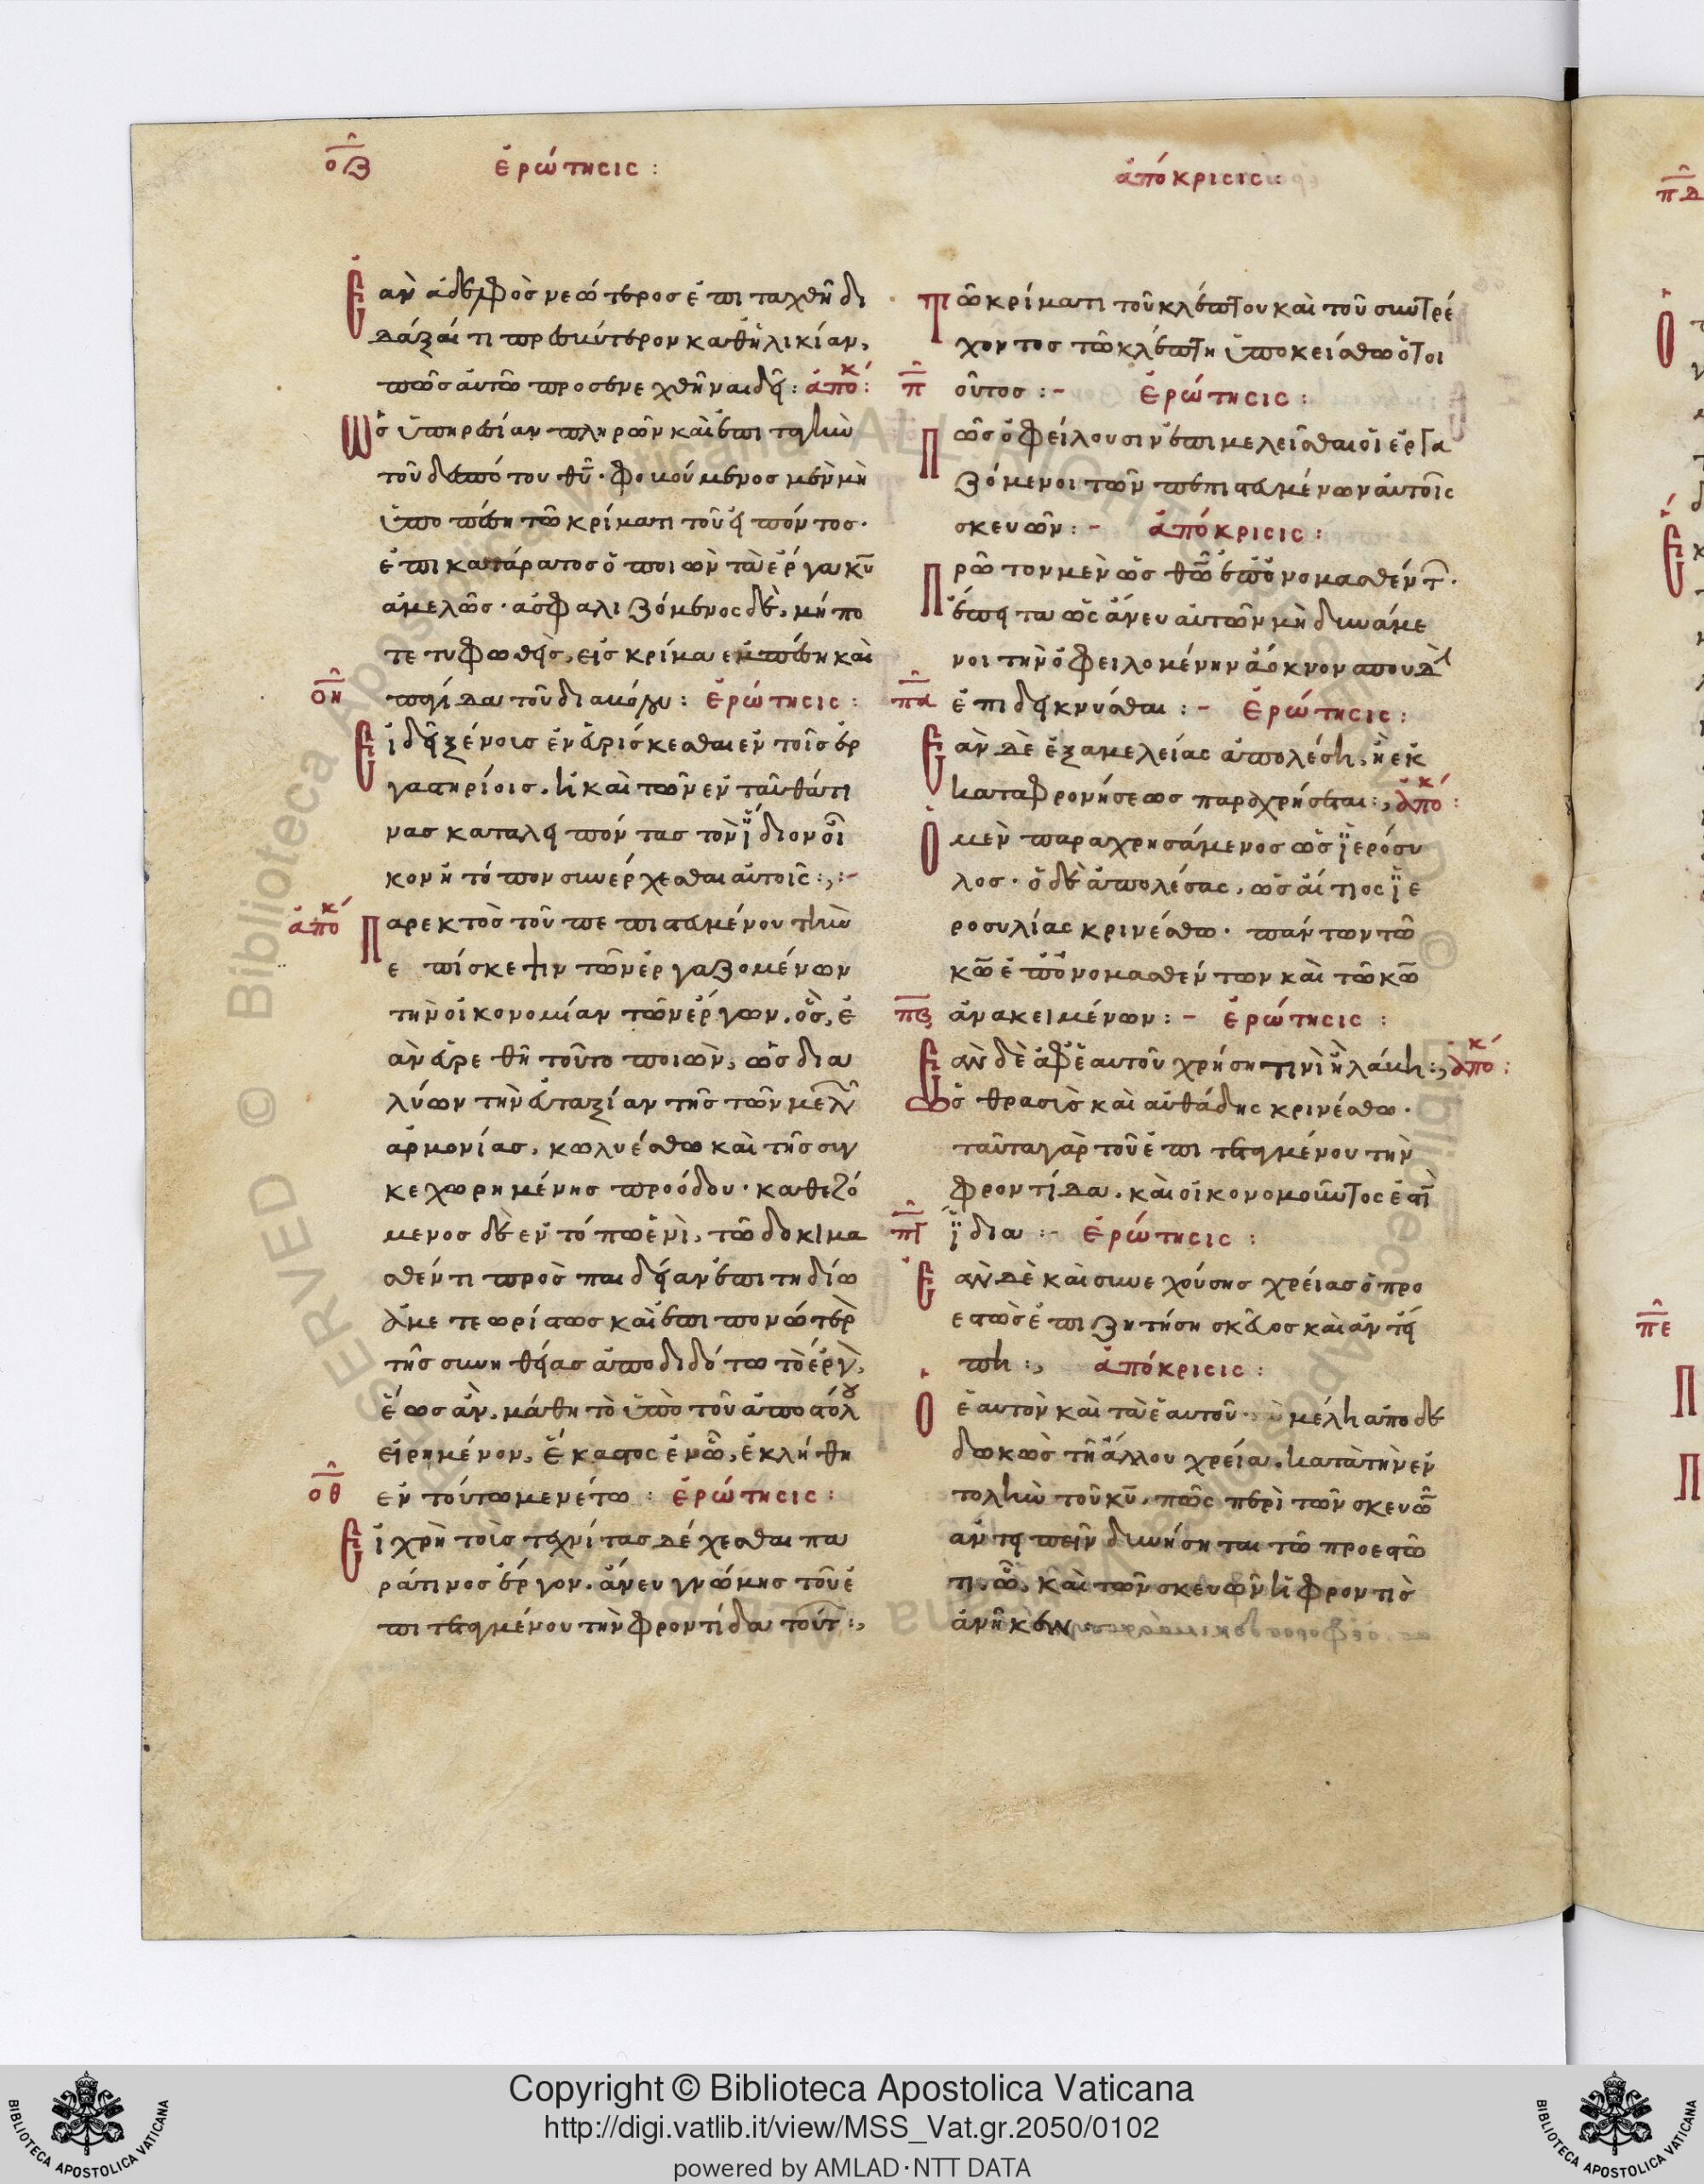 οζ ἐρώτησις :
Ἐὰν ἀδελφὸς νεώτερος ἐπιταχθῆ δι
δάξαι τι πρεσβύτερον καθηλικίαν,
πῶς αὐτῶ προσενεχθῆναι δεῖ : ἀπόκ :
Ὡς ὑπηρεσίαν πληρῶν καὶ ἐπιταγὴν
τοῦ δεσπότου θῦ · φοβούμενος μὲν μὴ
ὑποπέση τῶ κρίματι τοῦ εἰπόντος ·
ἐπικατάρατος ὁ ποιῶν τὰ ἔργα κῦ
ἀμελῶς · ἀσφαλιζόμενος δὲ, μήπο
τε τυφωθεὶς, εἰς κρίμα ἐμπέση καὶ
οη παγίδα τοῦ διαβόλου : ἐρώτησις :
Εἰ δεῖ ξένοις ἐναρίσκεσθαι ἐν τοῖς ἐρ
γαστηρίοις. ἢ καὶ τῶν ἐν ταυθά τι
νας καταλειπόντας τὸν ἴδιον οἶ
κον ἢ τόπον συνέρχεσθαι αὐτοῖς :, :-
ἀπόκ Παρεκτὸς τοῦ πεπιστευμένου τὴν
ἐπίσκεψιν τῶν ἐργαζομένων
τὴν οἰκονομίαν τῶν ἔργων. ὃς, ἐ
ὰν εὑρεθῆ τοῦτο ποιῶν, ὡς δια
λύων τὴν εὐταξίαν τῆς τῶν μελῶν
ἁρμονίας, κωλυέσθω καὶ τῆς συγ
κεχωρημένης προόδου · καθεζό
μενος δὲ ἐν τόπω ἑνὶ, τῶ δοκιμα
σθέντι πρὸς παιδείαν ἐπιτηδίω
ἀμετεωρίστως καὶ ἐπιπονώτερ
τῆς συνηθείας ἀποδιδότω τὸ ἔργ,
ἕως ἂν, μάθη τὸ ὑπὸ τοῦ ἀποστόλου
εἰρημένον, ἕκαστος ἐν ὧ, ἐκλήθη
οθ ἐν τούτω μενέτω : ἐρώτησις :
Εἰ χρὴ τοὶς τεχνίτας δέχεσθαι πα
ράτινος ἔργον. ἄνευ γνώμης τοῦ ἐ
πιτεταγμένου τὴν φροντίδα τούτ :,
ἀπόκρισις :
Τῶ κρίματι τοῦ κλέπτου καὶ τοῦ συντρέ
χοντος τῶ κλέπτη ὑποκείσθω ὁ τοι
π οῦτος :- Ἐρώτησις :
Πῶς ὀφείλουσιν ἐπιμελεῖσθαι οἱ ἐργα
ζόμενοι τῶν πεπιστευμένων αὐτοῖς
σκευῶν :- ἀπόκρισις :
Πρῶτον μὲν ὡς θῶ ἐπονομασθέντ ·
ἔπειτα ὡς ἄνευ αὐτῶν μὴ δυνάμε
νοι τὴν ὀφειλομένην ἄοκνον σπουδὴ
πα ἐπιδείκνυσθαι :- Ἐρώτησις :
Ἐὰν δὲ ἐξ ἀμελείας ἀπολέση, ἢ ἐκ
καταφρονήσεως παραχρήσεται :, ἀπόκ :
Ὁ μὲν παραχρησάμενος ὡς ἱερόσυ
λος · ὁ δὲ ἀπολέσας, ὡς αἴτιος ἱε
ροσυλίας κρινέσθω · πάντων τῶ
κῶ ἐπονομασθέντων καὶ τῶ κῶ
πβ ἀνακειμένων :- ἐρώτησις :
Ἐὰν δὲ ἀφἑαυτοῦ χρήση τινὶ ἢ λάβη :, ἀπόκ :
Ὡς θρασὶς καὶ αὐθάδης κρινέσθω ·
ταῦτα γὰρ τοῦ ἐπιτεταγμένου τὴν
φροντίδα. καὶ οἰκονομοῦντος ἐστὶ
πγ ἴδια :- ἐρώτησις :
Ἐὰν δὲ καὶ συνεχούσης χρείας ὁ προ
εστὼς ἐπιζητήση σκεῦος καὶ ἀντεί
πη :, ἀπόκρισις :
Ὁ ἑαυτὸν καὶ τὰ ἑαυτοῦ μέλη ἀποδε
δωκὼς τῆ ἄλλου χρεία. κατὰ τὴν ἐν
τολὴν τοῦ κῦ, πῶς περὶ τῶν σκευῶ
ἀντειπεῖν δυνήσηται τῶ προεστῶ
τι, ὧ, καὶ τῶν σκευῶν ἡ φροντὶς
ἀνῆκεν :-
πδ
πε
Copyright © Biblioteca Apostolica Vaticana
http://digi.vatlib.it/view/MSS_Vat.gr.2050/0102
powered by AMLAD·NTT DATA
BIBLIOTECA APOSTOLICA VATICANA
BIBLIOTECA APOSTOLICA VATICANA